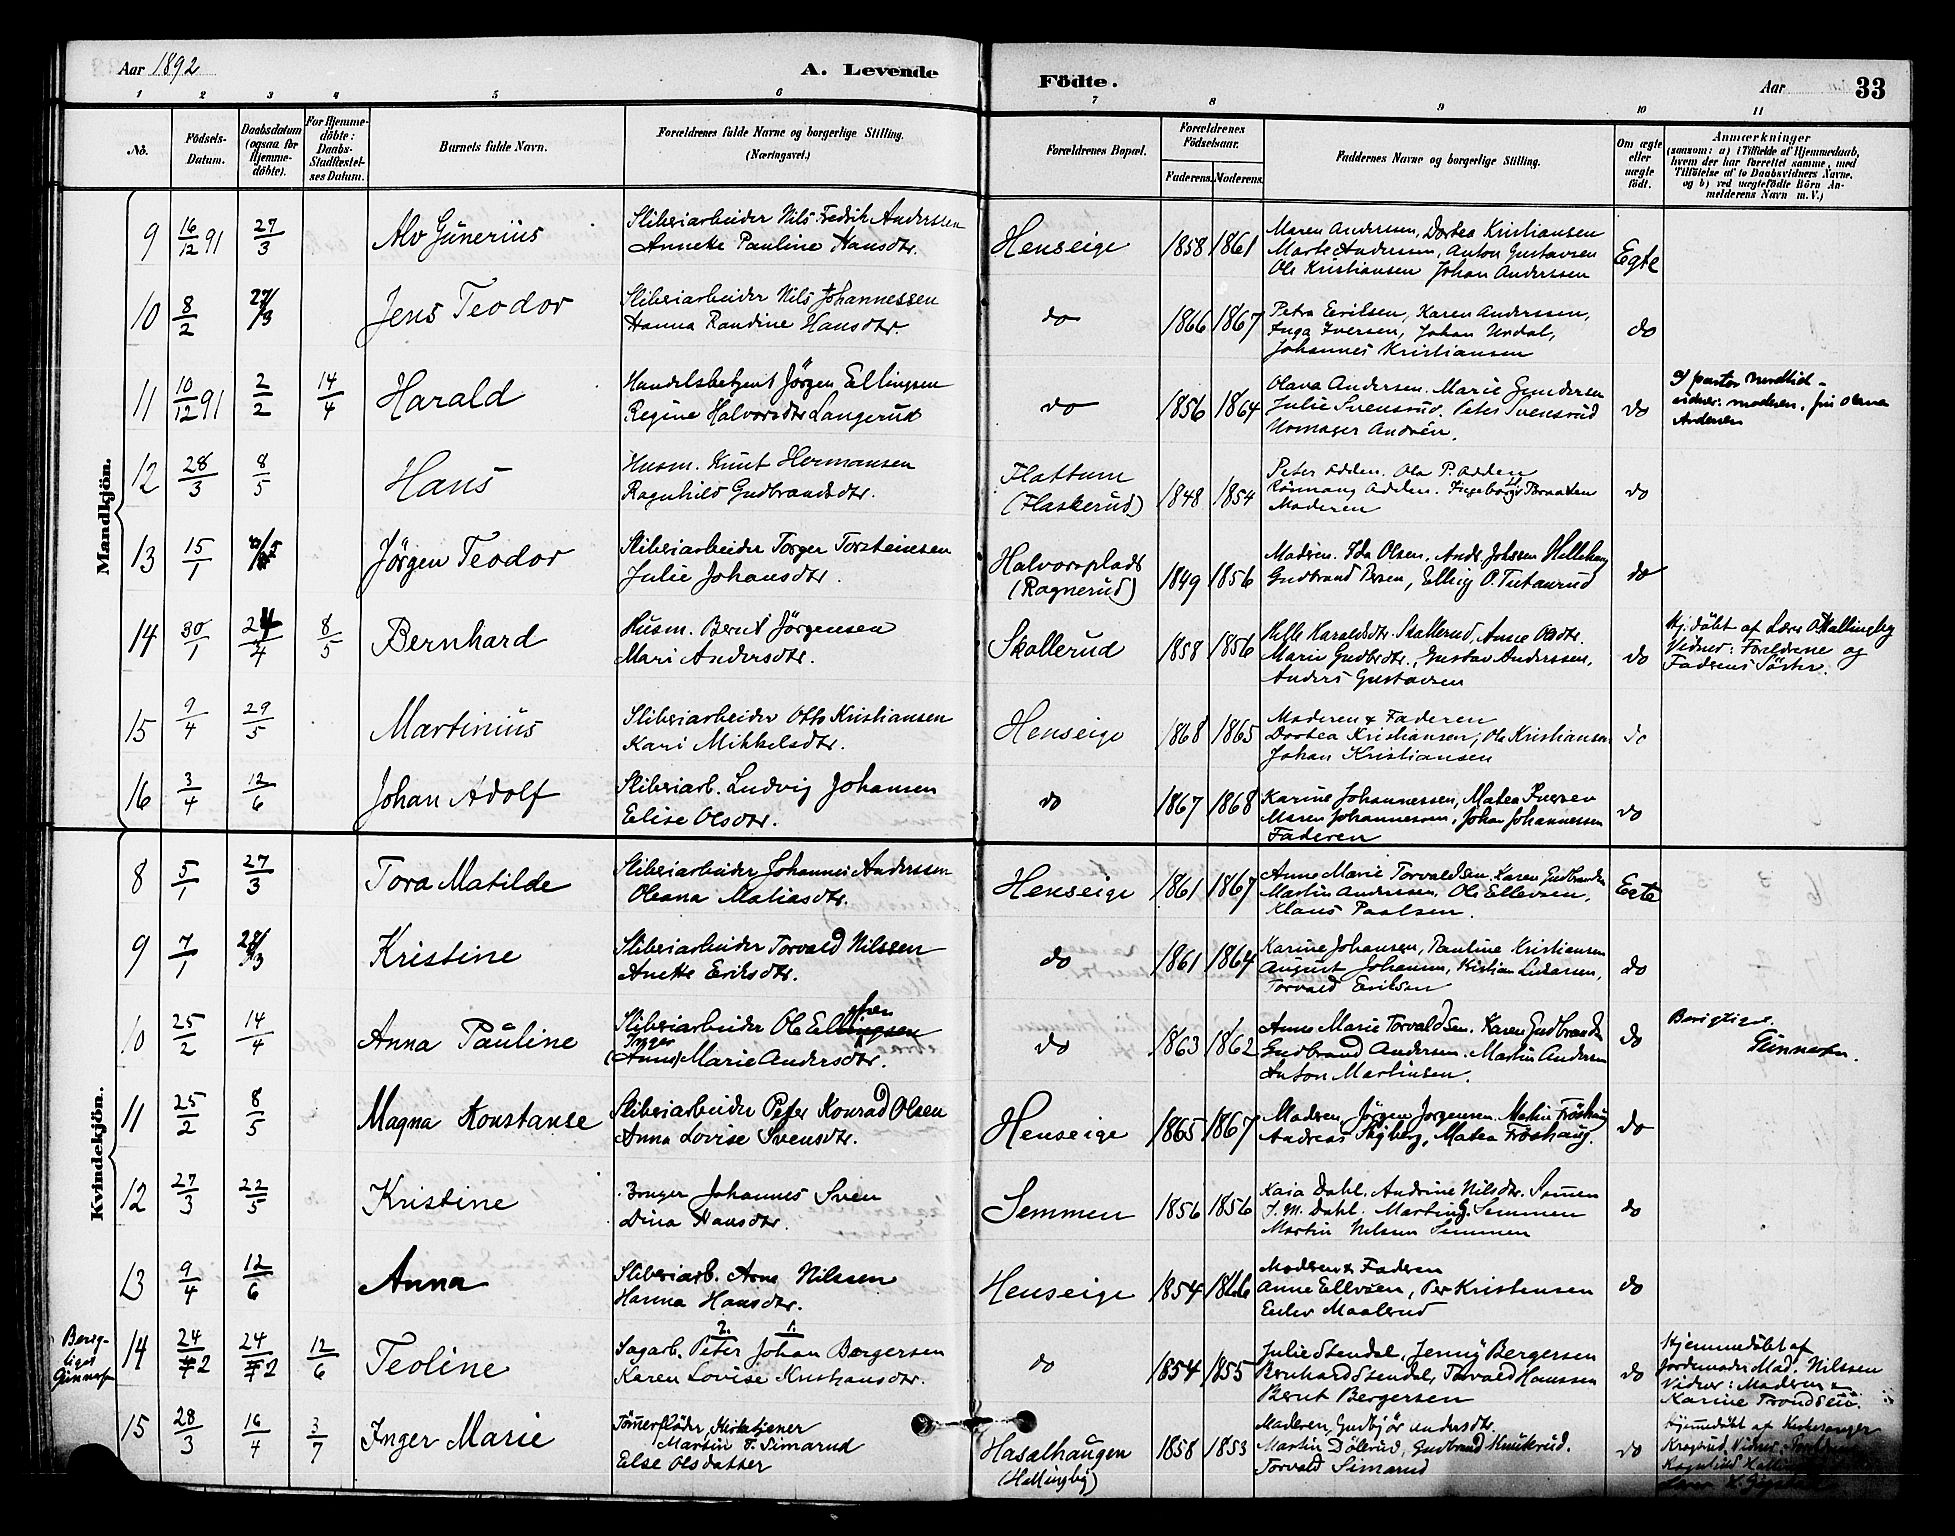 Aar 1892
A. Levende
Födte.
Aar
33
1 2 3 4 5 6 7 8 9 10 11
No.
Födsels-
Datum.
Daabsdatum
(ogsaa for
Hjemme-
döbte).
For Hjemme-
döbte:
Daabs-
Stadfæstel-
ses Datum.
Barnets fulde Navn.
Forældrenes fulde Navne og borgerlige Stilling.
(Næringsvei.)
Forældrenes Bopæl.
Forældrenes
Födselsaar.
Faderens. Moderens.
Faddernes Navne og borgerlige Stilling.
Om ægte
eller
uægte
födt.
Anmærkninger
(saasom: a) i Tilfælde af Hjemmedaab,
hvem der har forrettet samme, med
Tilföielse af to Daabsvidners Navne,
og b) ved uægtefödte Börn An-
melderens Navn m. V.)
Mandkjön.
9 16/12 91 27/3 Alv Günerius
Sliberiarbeider Nils Fredrik Anderssen
Annette Pauline Hansdtr.
Henseige 1858 1861
Maren Andersen, Dortea Kristiansen
Marte Andersen, Anton Gustavsen
Ole Kristiansen Johan Anderssen
Egte
10 8/2 27/3 Jens Teodor
Sliberiarbeider Nils Johannessen
Hanna Randine Hansdtr.
do 1866 1867
Petra Eriksen, Karen Anderssen,
Inga Iversen, Johan Undal,
Johannes Kristiansen
do
11 10/12 91 2/2 14/4 Harald
Handelsbetjent Jörgen Ellingsen
Regine Halvorsdtr Langerud
do 1856 1864
Olava Andersen. Marie Gundersen
Julie Svensrud. Peter Svensrud
Urmager Andrén.
do
12 28/3 8/5 Hans
Husm. Knut Hermansen
Ragnhild Gudbrandsdtr.
Flattum
(Flaskerud)
1848 1854
Peter Adden. Ola P. Adden
Rönnaug Adden. Ingeborg Braaten
Moderen
do
13 15/1 8/5 Jörgen Teodor
Sliberiarbeider Torger Torsteinsen
Julie Johansdtr.
Halvorsplads
(Ragnerud)
1849 1856
Moderen. Ida Olsen. Andr. Johssen Hellehaug
Gudbrand Persen, Elling O. Tutanrud
do
14 30/1 24/4 8/5 Bernhard
Husm. Bernt Jörgensen
Mari Andersdtr.
Skollerud 1858 1856
Helle Haraldsdtr. Skollerud, Anne Olsdtr.
Marie Gudbrdtr., Gustav Anderssen,
Anders Gustavsen
do
Hj. döbt af Lærer O. Hallingby
Vidner: Forældrene og
Faderens Söster.
15 9/4 29/5 Martinius
Sliberiarbeider Otto Kristiansen
Kari Mikkelsdtr.
Henseige 1868 1865
Moderen & Faderen
Dortea Kristiansen, Ole Kristiansen
Johan Kristiansen
do
16 3/4 12/6 Johan Adolf
Sliberiarb. Ludvig Johansen
Elise Olsdtr.
do 1867 1868
Karine Johannessen, Matea Iversen
Maren Johannessen, Johan Johannessen
Faderen
do
Kvindekjön.
8 5/1 27/3 Tora Matilde
Sliberiarbeider Johannes Anderssen
Oleana Matiasdtr.
Henseige 1861 1867
Anne Marie Torvaldsen. Karen Gudbrandsen
Martin Andersen, Ole Ellevsen,
Klaus Paalsen.
Egte
9 7/1 28/3 Kristine
Sliberiarbeider Torvald Nilssen
Anette Eriksdtr.
do 1861 1864
Karine Johansen, Pauline Kristiansen
August Johansen, Kristian Larsen,
Torvald Eriksen
do
10 25/2 14/4 Anna Pauline
Sliberiarbeider Ole Ellingsen
Inger
(Anne) Marie Andersdtr.
do 1863 1862
Anne Marie Torvaldsen. Karen Gudbrandsen
Gudbrand Andersen. Martin Andersen
Anton Martinsen.
do
Berigtiget
Günnersen.
11 25/2 8/5 Magna Konstanse
Sliberiarbeider Peter Konrad Olsen
Anna Lovise Svensdtr.
Henseige 1865 1867
Moderen, Jörgen Jörgensen. Martin Fröshaug
Andreas Styberg, Matea Fröshaug.
do
12 27/3 22/5 Kristine
Bruger Johannes Sven
Dina Hansdtr.
Semmen 1856 1856
Kaia Dahl. Andrine Nilsdtr. Semmen
J. M. Dahl. Martin G. Semmen
Martin Nilssen Semmen
do
13 9/4 12/6 Anna
Sliberiarb. Arne Nilssen
Hanna Hansdtr.
Henseige 1854 1866
Moderen & Faderen
Anne Ellevsen, Per Kristensen
Enlev Maalerud
do
Berig-
tiget
14 24/2 24/2 12/6 Teoline
2. 1.
Sagarb. Peter Johan Borgersen
Karen Lovise Kristiansdtr.
do 1854 1855
Julie Stendal, Jenny Bergersen
Bernhard Stendal, Torvald Hanssen
Bernt Bergersen
do
Hjemmedöbt af
Jordemoder Mad. Nilssen
Vidner: Moderen &
Karine Trondsen.
15 28/3 16/4 3/7 Inger Marie
Tömmerflöder, Kirketjener
Martin F. Simarud
Else Olsdatter
Haselhaugen
(Hallingby)
1858 1853
Moderen, Gudbjör Andersdtr.
Martin Dölerud, Gudbrand Smukrud.
Torvald Simarud
do
Hjemmedöbt af Kirkesanger